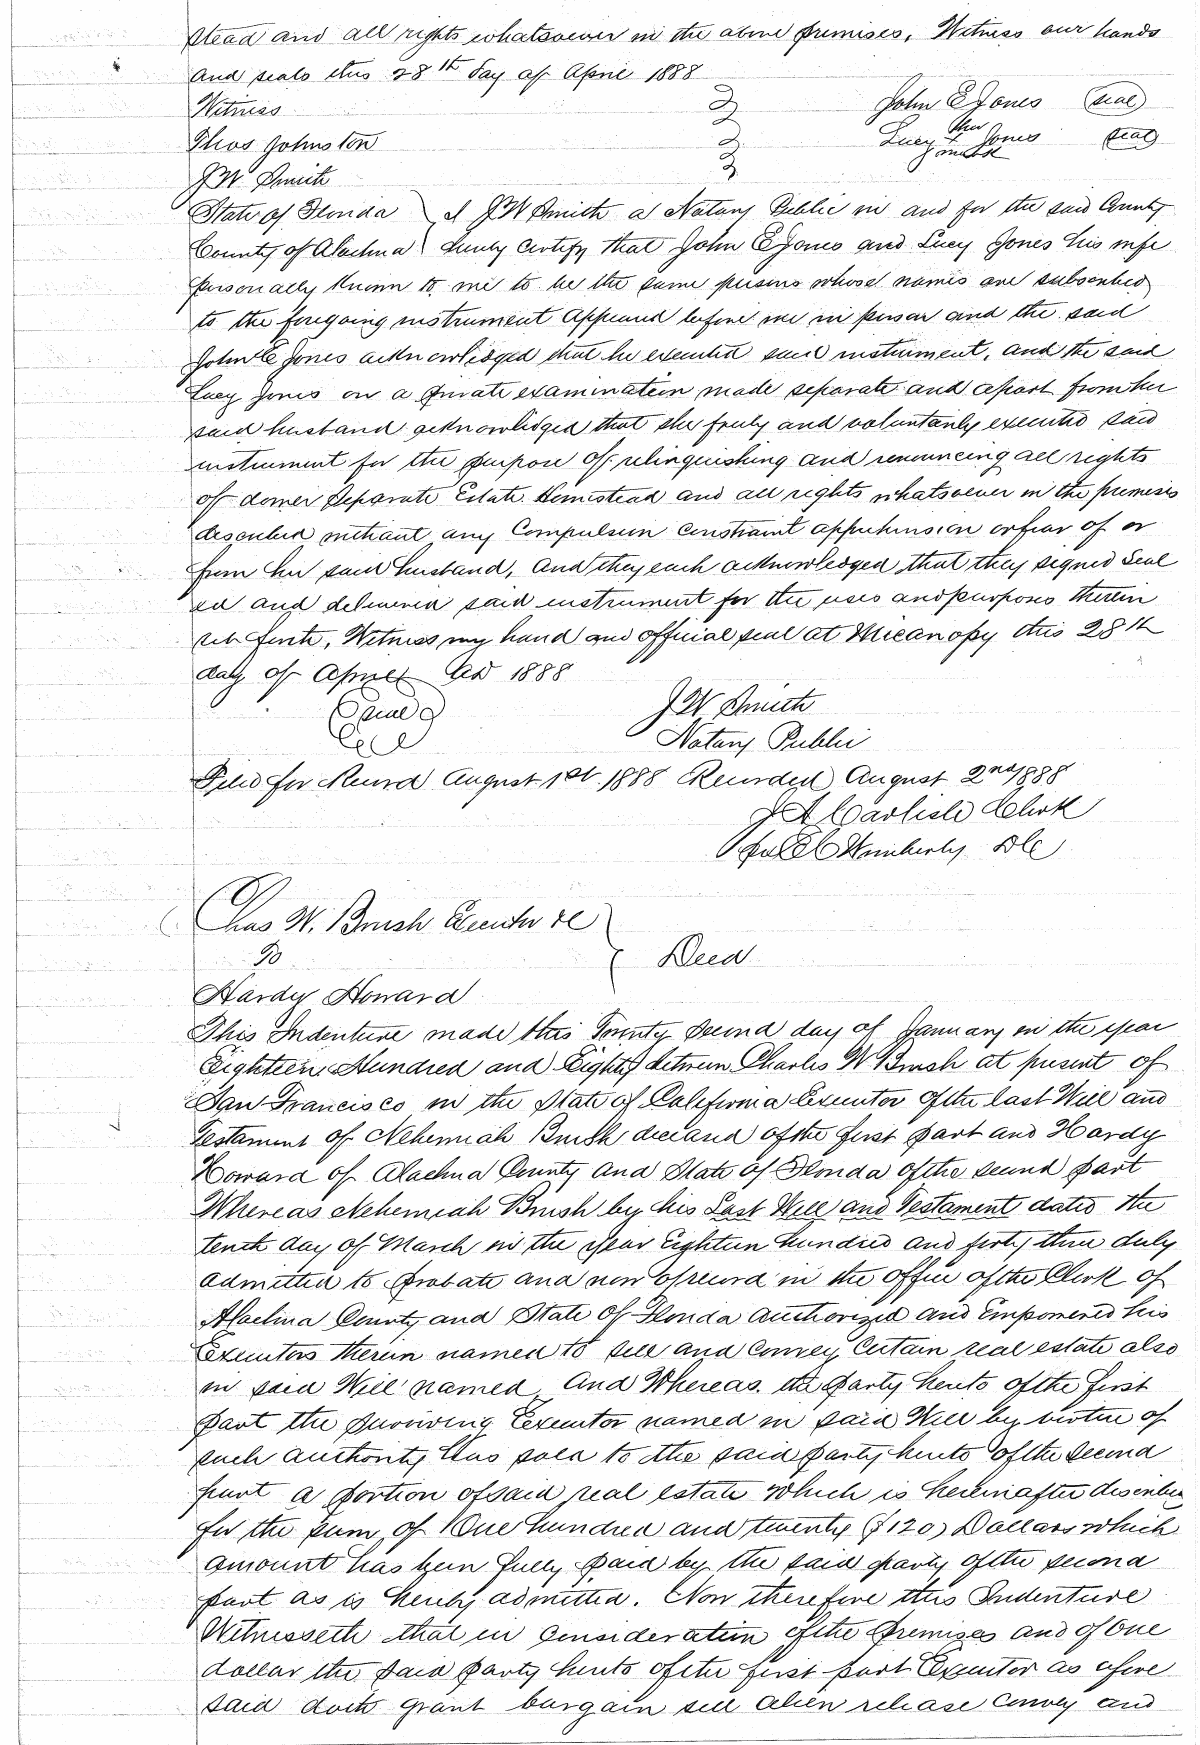 stead and all rights whatsoever in the above premises, Witness our hands
and seals this 28th day of April 1888
Witness John E Jones (seal)
her
Thos Johnston Lucy X Jones (seal)
J W Smith
State of Florida I J W Smith a Notary Public in and for the said County
County of Alachua hereby certify that John E Jones and Lucy Jones his wife
personally known to me to be the same persons whose names are subscribed
to the foregoing instrument appeared before me in person and the said
John E Jones acknowledged that he executed said instrument, and the said
Lucy Jones on a private examination made separate and apart from her
said husband acknowledged that she freely and voluntarily executed said
instrument for the purpose of relinquishing and renouncing all rights
of dower separate Estate Homestead and all rights whatsoever in the premises
described without any Compulsion constraint apprehension or fear of or
from her said husband, and they each acknowledged that they signed Seal
ed and delivered said instrument for the uses and purposes therein
set forth, Witness my hand and official seal at Micanopy this 28th
day of April AD 1888
Seal J W Smith
Notary Public
Filed for Record August 1st 1888 Recorded August 2nd 1888
J A Carlisle Clerk
per Wimberly DC
Chas W. Brush Executor
To Deed
Hardy Howard
This Indenture made this Twenty Second day of January in the year
Eighteen Hundred and Eighty between Charles W Brush at present of
San Francisco in the State of California Executor of the last Will and
Testament of Nehemiah Brush deceased of the first part and Hardy
Howard of Alachua County and State of Florida of the second part
Whereas Nehemiah Brush by his Last Will and Testament dated the
tenth day of March in the year Eighteen hundred and forty three duly
admitted to probate and now of record in the office of the Clerk of
Alachua County and State of Florida authorized and Empowered his
Executors therein named to sell and convey certain real estate also
in said Will named And Whereas the party hereto of the first
part the surviving Executor named in said Will by virtue of
such authority has sold to the said party hereto of the second
part a portion of said real estate which is hereinafter described
for the sum of One hundred and twenty ($120) Dollars which
amount has been fully paid by the said party of the second
part as is hereby admitted. Now therefore this Indenture
Witnesseth that in consideration of the premises and of One
dollar the said party hereto of the first part Executor as afore
said doth grant bargain sell alien release convey and